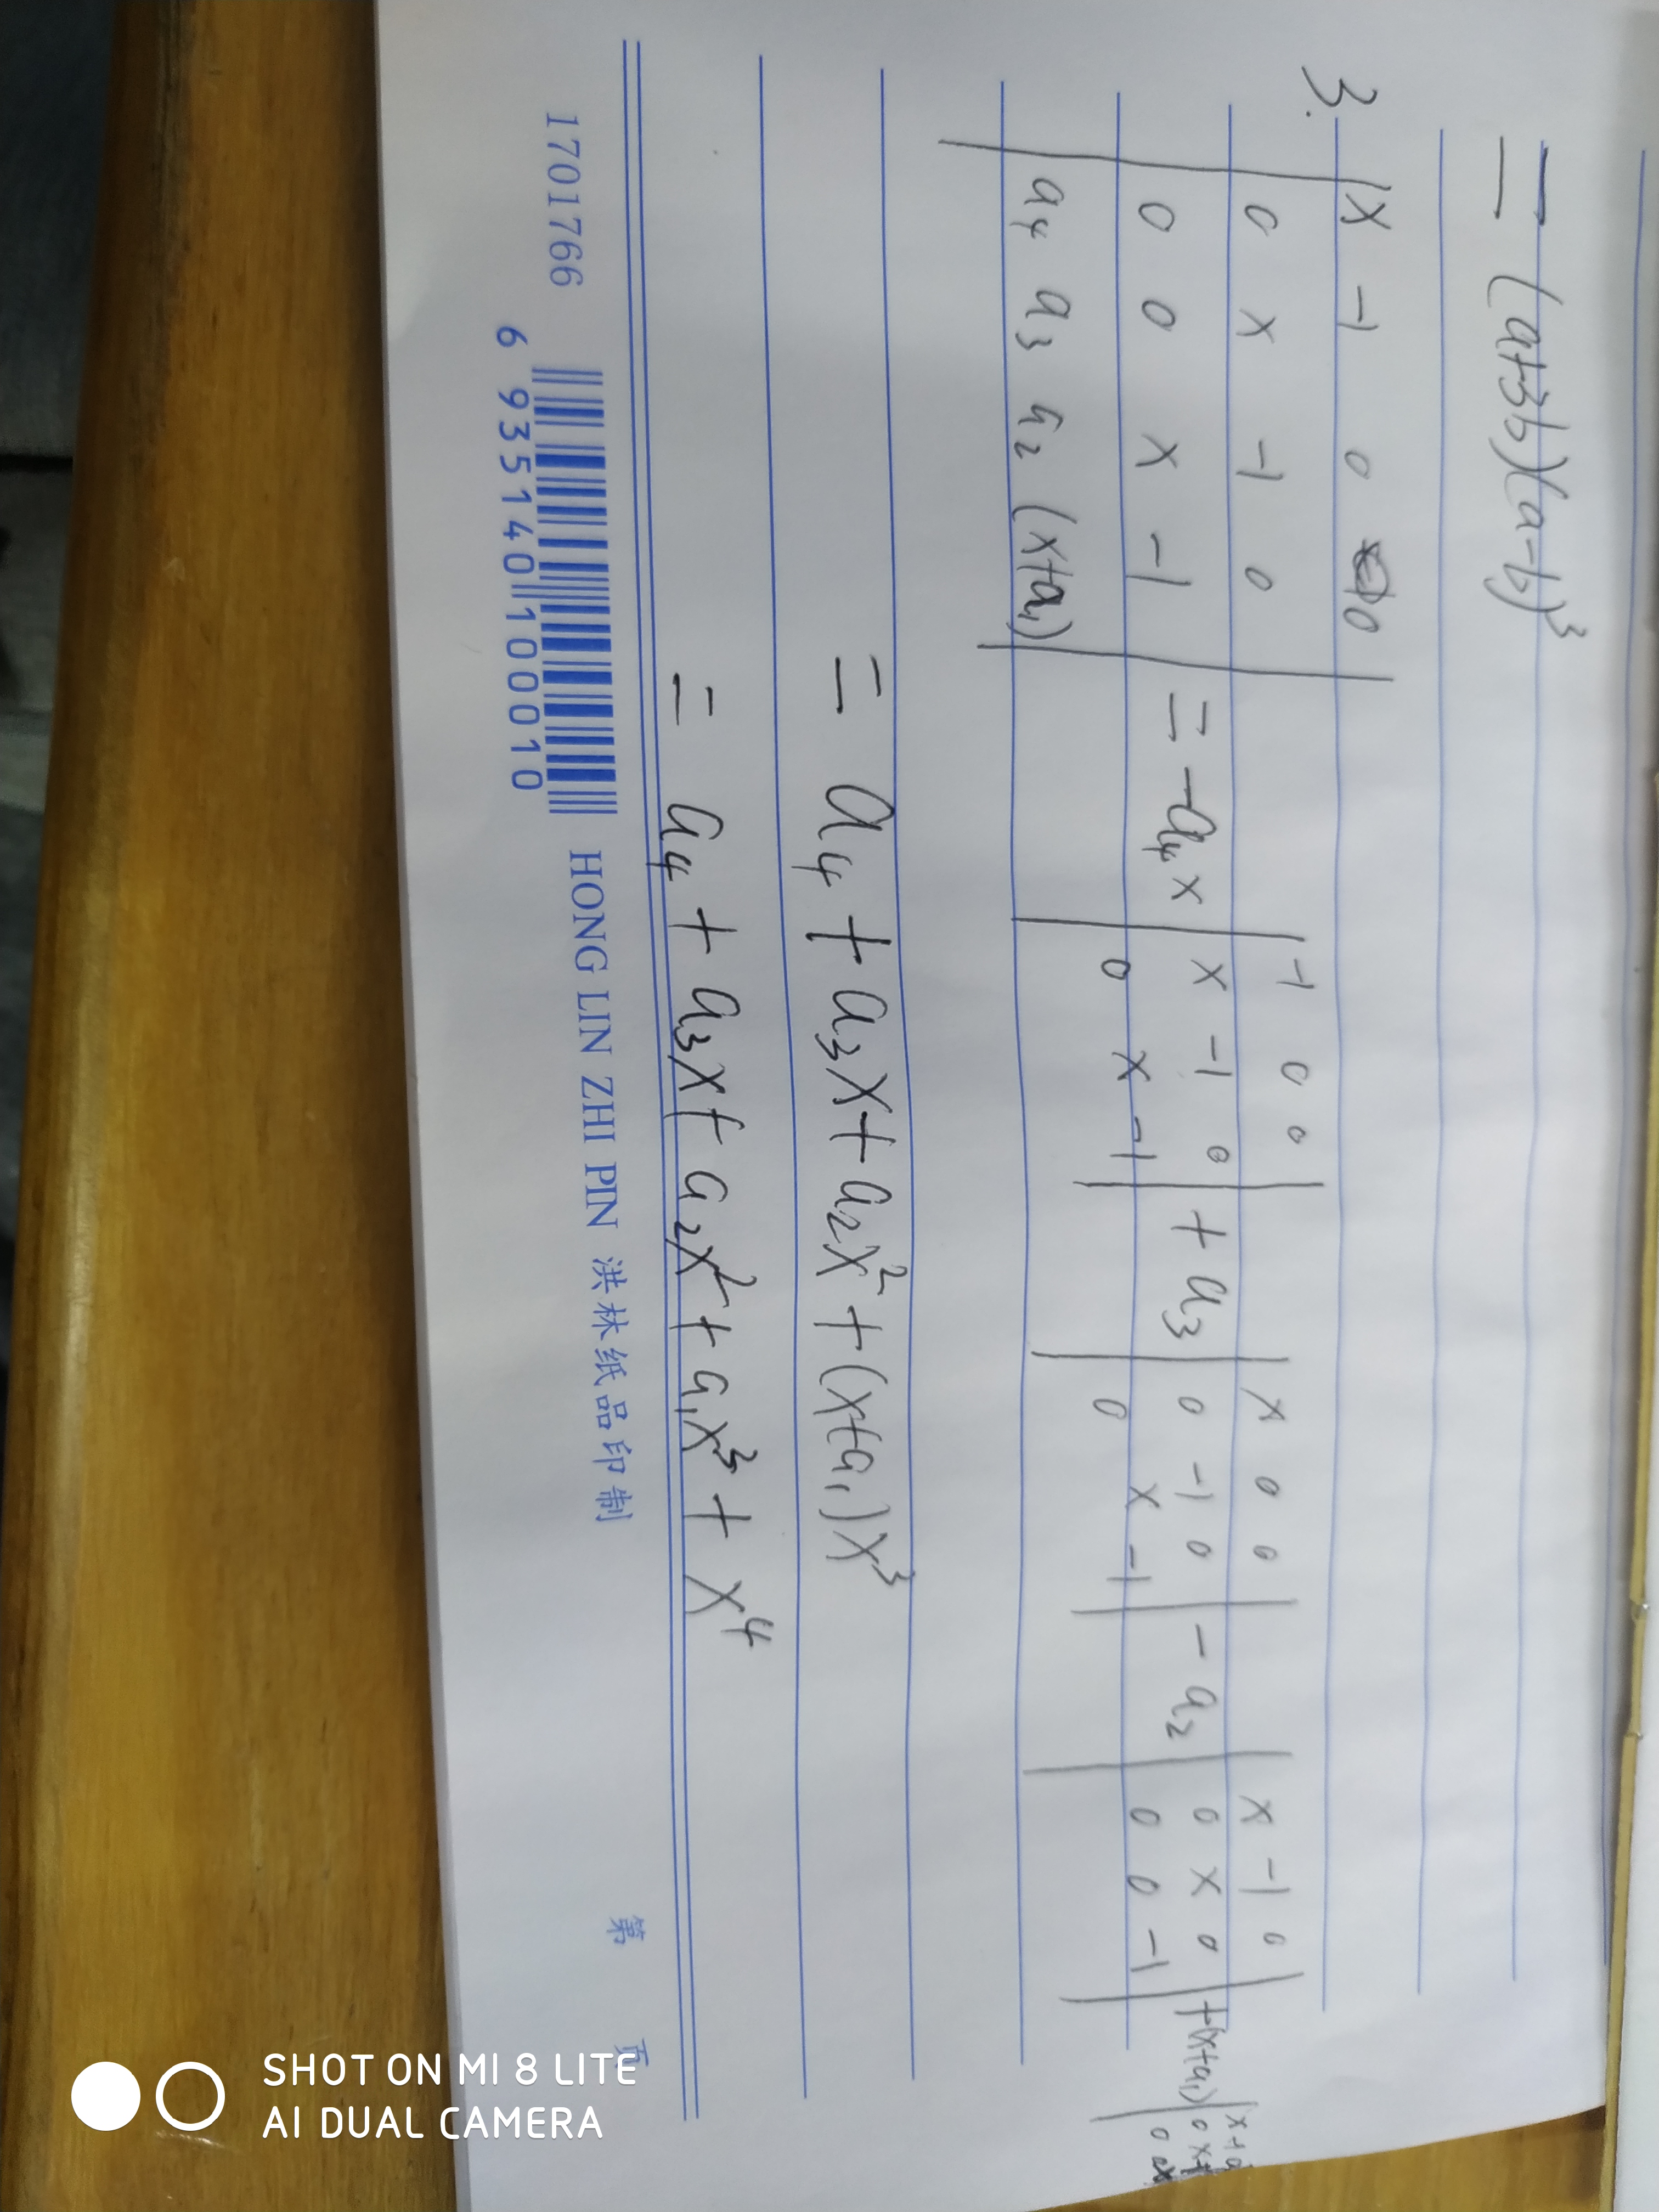 = (a+3b)(a-b)³
3. | x -1 0 0 |
| 0 x -1 0 |
| 0 0 x -1 |
| a₄ a₃ a₂ (x+a₁) |
= -a₄ x | -1 0 0 |
| x -1 0 |
| 0 x -1 |
+ a₃ | x 0 0 |
| 0 -1 0 |
| 0 x -1 |
- a₂ | x -1 0 |
| 0 x 0 |
| 0 0 -1 |
+(x+a₁) | x -1 0
0 x -1
0 0 x
= a₄ + a₃x + a₂x² + (x+a₁)x³
= a₄ + a₃x + a₂x² + a₁x³ + x⁴
1701766
6 935140 100010
HONG LIN ZHI PIN 洪林纸品印制
第 页
SHOT ON MI 8 LITE
AI DUAL CAMERA